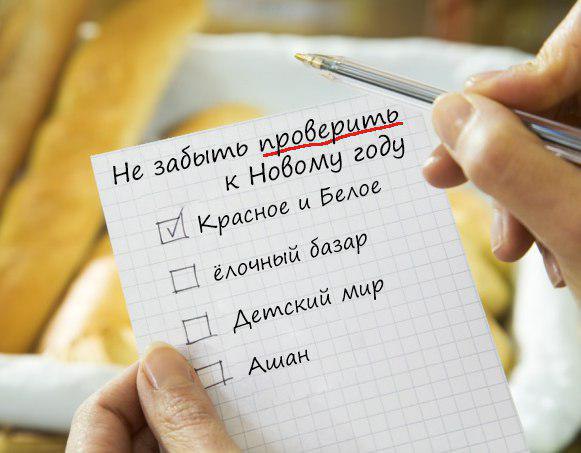 Не забыть проверить
к Новому году
Красное и Белое
ёлочный базар
Детский мир
Ашан